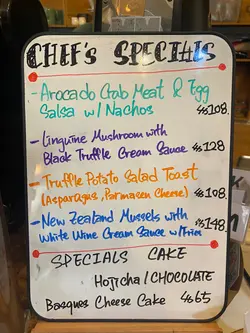 CHEF'S SPECIALS
- Avocado Crab Meat & Egg
Salsa w/ Nachos $108
- Linguine Mushroom with
Black Truffle Cream Sauce $128
- Truffle Potato Salad Toast
(Asparagus, Parmasen Cheese) $108
- New Zealand Mussels with
White Wine Cream Sauce w/ Fries $148
SPECIALS CAKE
Hojicha / CHOCOLATE
Basques Cheese Cake $65